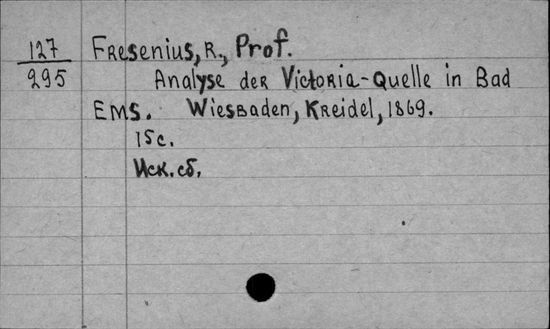 127 Fresenius, R., Prof.
295 Analyse der Victoria-Quelle in Bad
EMS. Wiesbaden, Kreidel, 1869.
15 c.
Иск. сб.